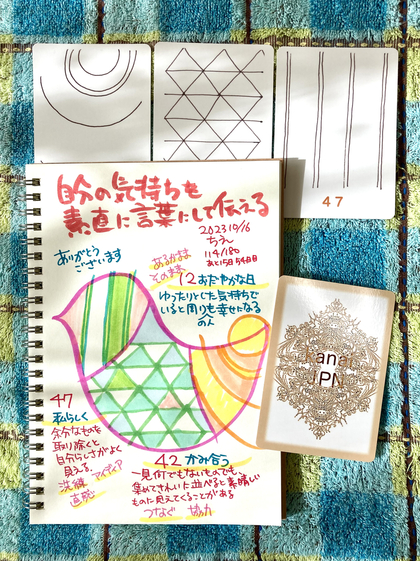 47
自分の気持ちを
素直に言葉にして伝える
2023 10/16
ちえ
114/180
ありがとう
ございます
あるがまま
そのまま
12 おだやかな日
ゆったりとした気持ちで
いると周りも幸せになる
の人
47
私らしく
余分なものを
取り除くと
自分らしさがよく
見える。
アイディア
洗練
直感
42 かみ合う
一見何でもないものでも、
集めてきれいに並べると素晴しい
ものに見えてくることがある
つなぐ 協力
Kana
IPN